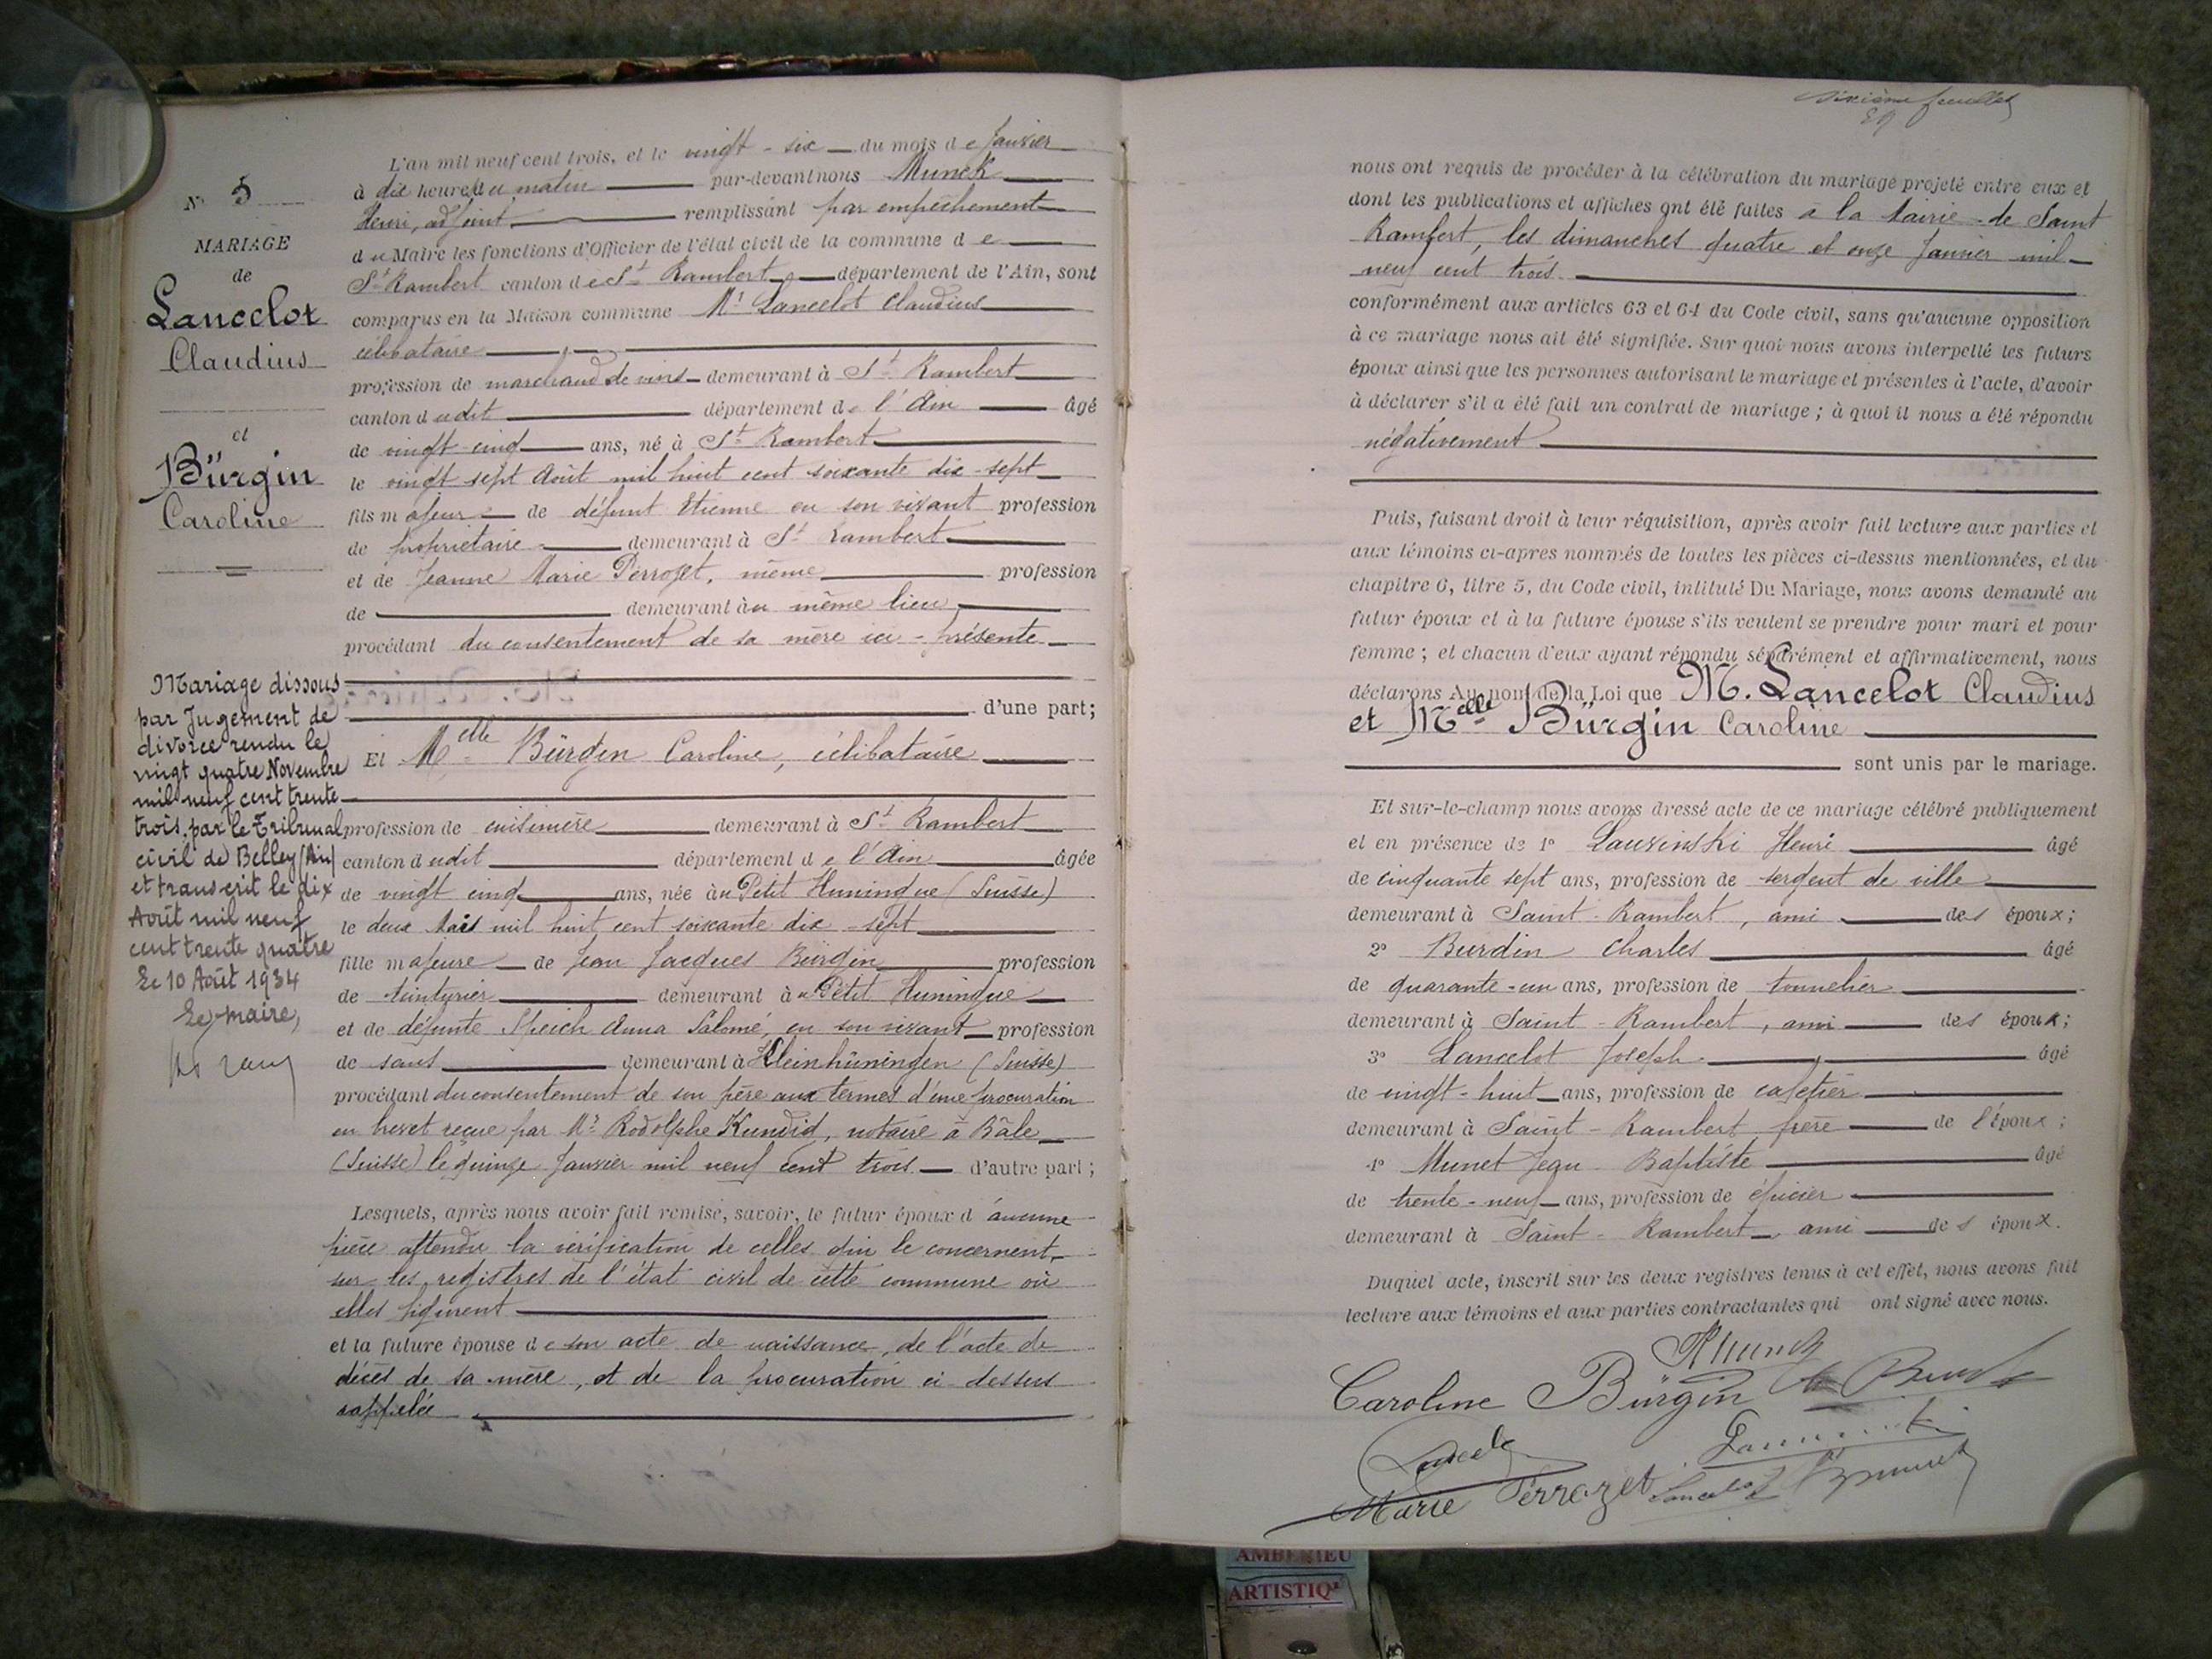 N° 5
MARIAGE
de
Lancelot
Claudius
et
Bürgin
Caroline
Mariage dissous
par Jugement de
divorce rendu le
vingt quatre Novembre
mil neuf cent trente
trois, par le Tribunal
civil de Belley (Ain)
et transcrit le dix
Août mil neuf
cent trente quatre
Le 10 Août 1934
Le maire,
L'an mil neuf cent trois, et le vingt-six du mois de Janvier
à dix heures du matin par-devant nous Munck
Henri, adjoint remplissant par empêchement
du Maire les fonctions d'Officier de l'état civil de la commune de
St Rambert canton de St Rambert, département de l'Ain, sont
comparus en la Maison commune Mr Lancelot Claudius
célibataire
profession de marchand de vins demeurant à St Rambert
canton dudit département de l'Ain âgé
de vingt-cinq ans, né à St Rambert
le vingt sept Août mil huit cent soixante dix-sept
fils majeur de défunt Etienne en son vivant profession
de propriétaire demeurant à St Rambert
et de Jeanne Marie Perrozet, même profession
de demeurant au même lieu
procédant du consentement de sa mère ici-présente
d'une part;
Et Melle Bürgin Caroline, célibataire
profession de cuisinière demeurant à St Rambert
canton dudit département de l'Ain âgée
de vingt cinq ans, née au Petit Huningue (Suisse)
le deux Mars mil huit cent soixante dix-sept
fille majeure de Jean Jacques Bürgin profession
de teinturier demeurant au Petit Huningue
et de défunte Speich Anna Salomé, en son vivant profession
de sans demeurant à Kleinhüningen (Suisse)
procédant du consentement de son père aux termes d'une procuration
en brevet reçue par Mr Rodolphe Kundig, notaire à Bâle
(Suisse) le quinze Janvier mil neuf cent trois d'autre part;
Lesquels, après nous avoir fait remise, savoir, le futur époux d'aucune
pièce attendu la vérification de celles qui le concernent,
sur les registres de l'état civil de cette commune où
elles figurent
et la future épouse de son acte de naissance, de l'acte de
décès de sa mère, et de la procuration ci-dessus
rappelée
Sixième feuillet
nous ont requis de procéder à la célébration du mariage projeté entre eux et
dont les publications et affiches ont été faites à la Mairie de Saint
Rambert, les dimanches quatre et onze Janvier mil
neuf cent trois.
conformément aux articles 63 et 64 du Code civil, sans qu'aucune opposition
à ce mariage nous ait été signifiée. Sur quoi nous avons interpellé les futurs
époux ainsi que les personnes autorisant le mariage et présentes à l'acte, d'avoir
à déclarer s'il a été fait un contrat de mariage; à quoi il nous a été répondu
négativement
Puis, faisant droit à leur réquisition, après avoir fait lecture aux parties et
aux témoins ci-après nommés de toutes les pièces ci-dessus mentionnées, et du
chapitre 6, titre 5, du Code civil, intitulé Du Mariage, nous avons demandé au
futur époux et à la future épouse s'ils veulent se prendre pour mari et pour
femme; et chacun d'eux ayant répondu séparément et affirmativement, nous
déclarons Au nom de la Loi que M. Lancelot Claudius
et Melle Bürgin Caroline
sont unis par le mariage.
Et sur-le-champ nous avons dressé acte de ce mariage célébré publiquement
et en présence de 1° Lauzinski Henri âgé
de cinquante sept ans, profession de sergent de ville
demeurant à Saint-Rambert, ami des époux;
2° Burdin Charles âgé
de quarante-un ans, profession de tonnelier
demeurant à Saint-Rambert, ami des époux;
3° Lancelot Joseph âgé
de vingt-huit ans, profession de cafetier
demeurant à Saint-Rambert frère de l'époux;
4° Munet Jean-Baptiste âgé
de trente-neuf ans, profession de épicier
demeurant à Saint-Rambert, ami des époux.
Duquel acte, inscrit sur les deux registres tenus à cet effet, nous avons fait
lecture aux témoins et aux parties contractantes qui ont signé avec nous.
HMunck
Caroline Bürgin
Marie Perrozet
Lancelot
AMBERIEU
ARTISTIQ